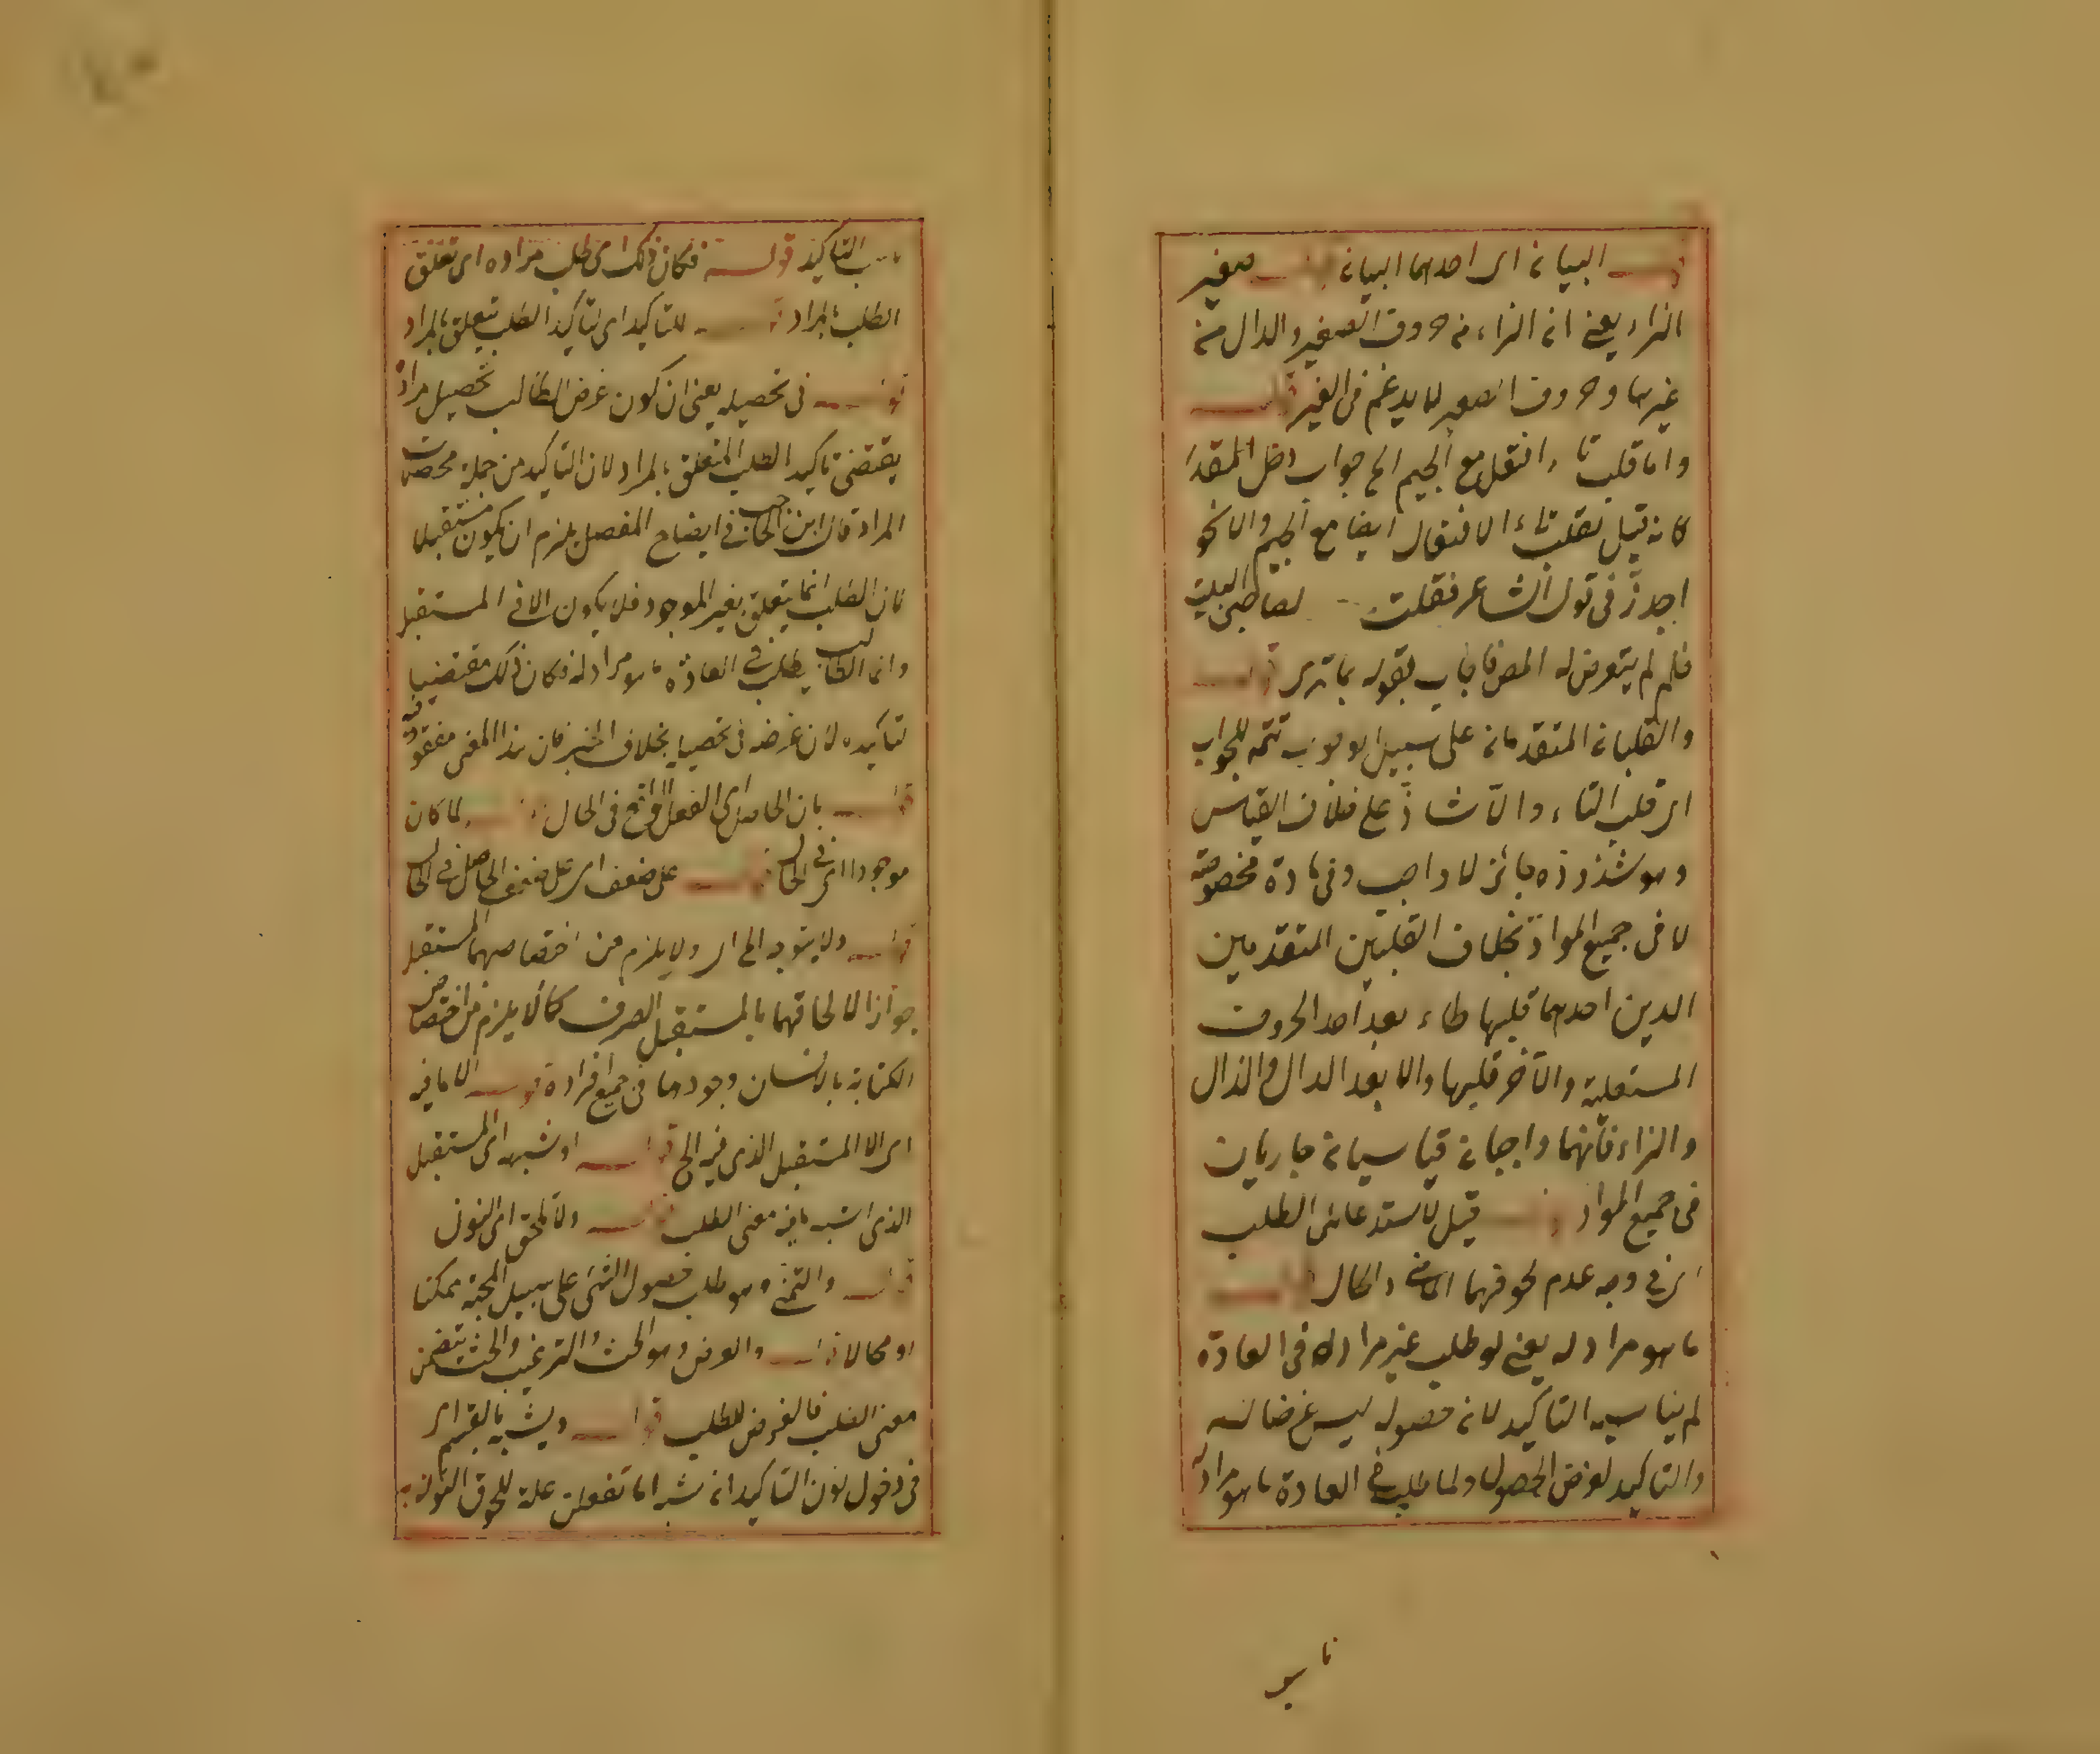 قوله البيان اى احدهما البيان قوله صفير
الزاء يعنى ان الزاء من حروف الصفير والدال من
غيرها وحروف الصفير لا يدغم فى الغير قوله
واما قلب تاء افتعل مع الجيم الخ جواب دخل المقدر
كانه قيل تقلب تاء الافتعال ايضا مع الجيم والا نحو
اجدز فى قول الشاعر فقلت لصاحبى البيت
فلم لم يتعرض له المص فاجاب بقوله بما ترى قوله
والقلبان المتقدمان على سبيل الوجوب تتمة للجواب
اى قلب التاء والا شاذ على خلاف القياس
وهو شذوذه جائز لا واجب وفى مادة مخصوصة
لا فى جميع المواد بخلاف القلبين المتقدمين
الذين احدهما قلبها طاء بعد احد الحروف
المستعلية والآخر قلبها دالا بعد الدال والذال
والزاء فانهما واجبان قياسيان جاريان
فى جميع المواد قوله قيل لاستدعائى الطلب
اى فى وجه عدم لحوقهما الماضى والحال قوله
ما هو مراد له يعنى لو طلب غير مراد له فى العادة
لم يناسبه التاكيد لان حصوله ليس غرضا له
والتاكيد لغرض الحصول ولما طلب فى العادة ما هو مراد له
نا سب
ناسب التاكيد قوله فكان ذلك اى طلب مراده اى تعلق
الطلب بالمراد قوله للتاكيد اى لتاكيد الطلب يتعلق بالمراد
قوله فى تحصيله يعنى ان كون غرض الطالب تحصيل مراده
يقتضى تاكيد الطلب المتعلق بالمراد لان التاكيد من جملة محصلات
المراد قال ابن الحاجب فى ايضاح المفصل يلزم ان يكون مستقبلا
لان الطلب انما يتعلق بغير الموجود فلا يكون الا فى المستقبل
وانما الطالب يطلب فى العادة ما هو مراد له فكان ذلك مقتضيا
لتاكيده لان غرضه فى تحصيله بخلاف الخبر فان هذا المعنى مفقود فيه
قوله بان الحاصل اى الفعل الواقع فى الحال قوله لما كان
موجودا اى فى الحال قوله على ضعف اى على ضعف الحاصل فى الحال
قوله ولا يتوجه الخ اى ولا يلزم من اختصاصهما بالمستقبل
جواز الالحاقهما بالمستقبل الصرف كما لا يلزم من اختصاص
الكتابة بالانسان وجودها فى جميع افراده قوله الا ما فيه
اى الا المستقبل الذى فيه الخ قوله او شبهه اى المستقبل
الذى اشبه ما فيه معنى الطلب قوله ولا تلحق اى النون
قوله والتمنى وهو طلب حصول الشئ على سبيل المحبة ممكنا
او محالا قوله والعرض وهو الحث والترغيب والحث يتضمن
معنى الطلب فالعرض للطلب قوله ويشبه بالقسم اى
فى دخول نون التاكيد انه شبه اما تفعلن علة للحوق النون